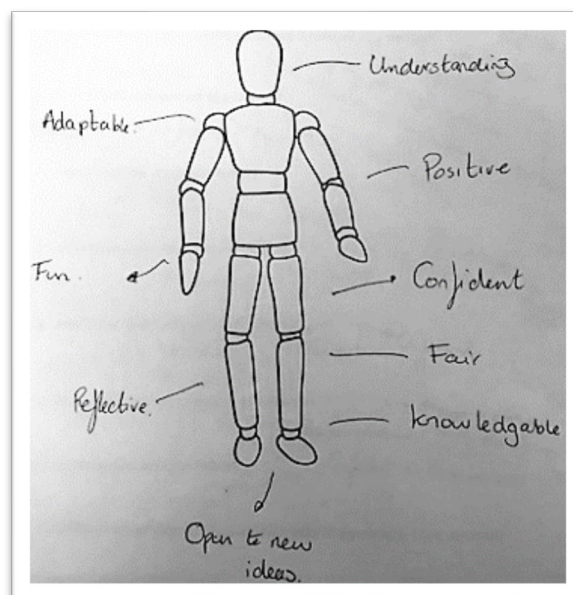 Understanding
Adaptable.
Positive
Fun.
Confident
Fair
Reflective.
knowledgable
Open to new
ideas.